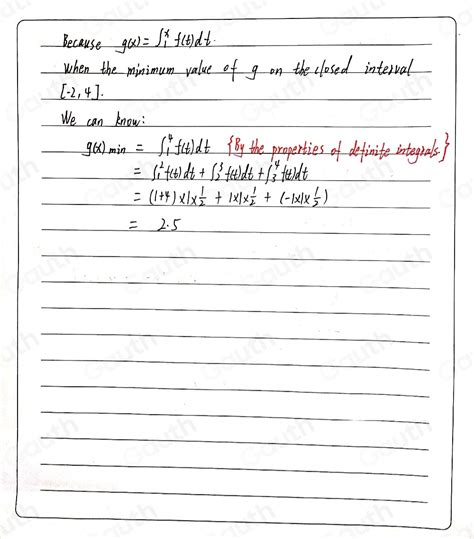 Because g(x) = ∫₁ˣ f(t)dt.
when the minimum value of g on the closed interval
[-2, 4].
We can know:
g(x) min = ∫₁⁴ f(t)dt {By the properties of definite integrals.}
= ∫₁² f(t)dt + ∫₂³ f(t)dt + ∫₃⁴ f(t)dt
= (1+4)×1×1/2 + 1×1×1/2 + (-1×1×1/2)
= 2.5